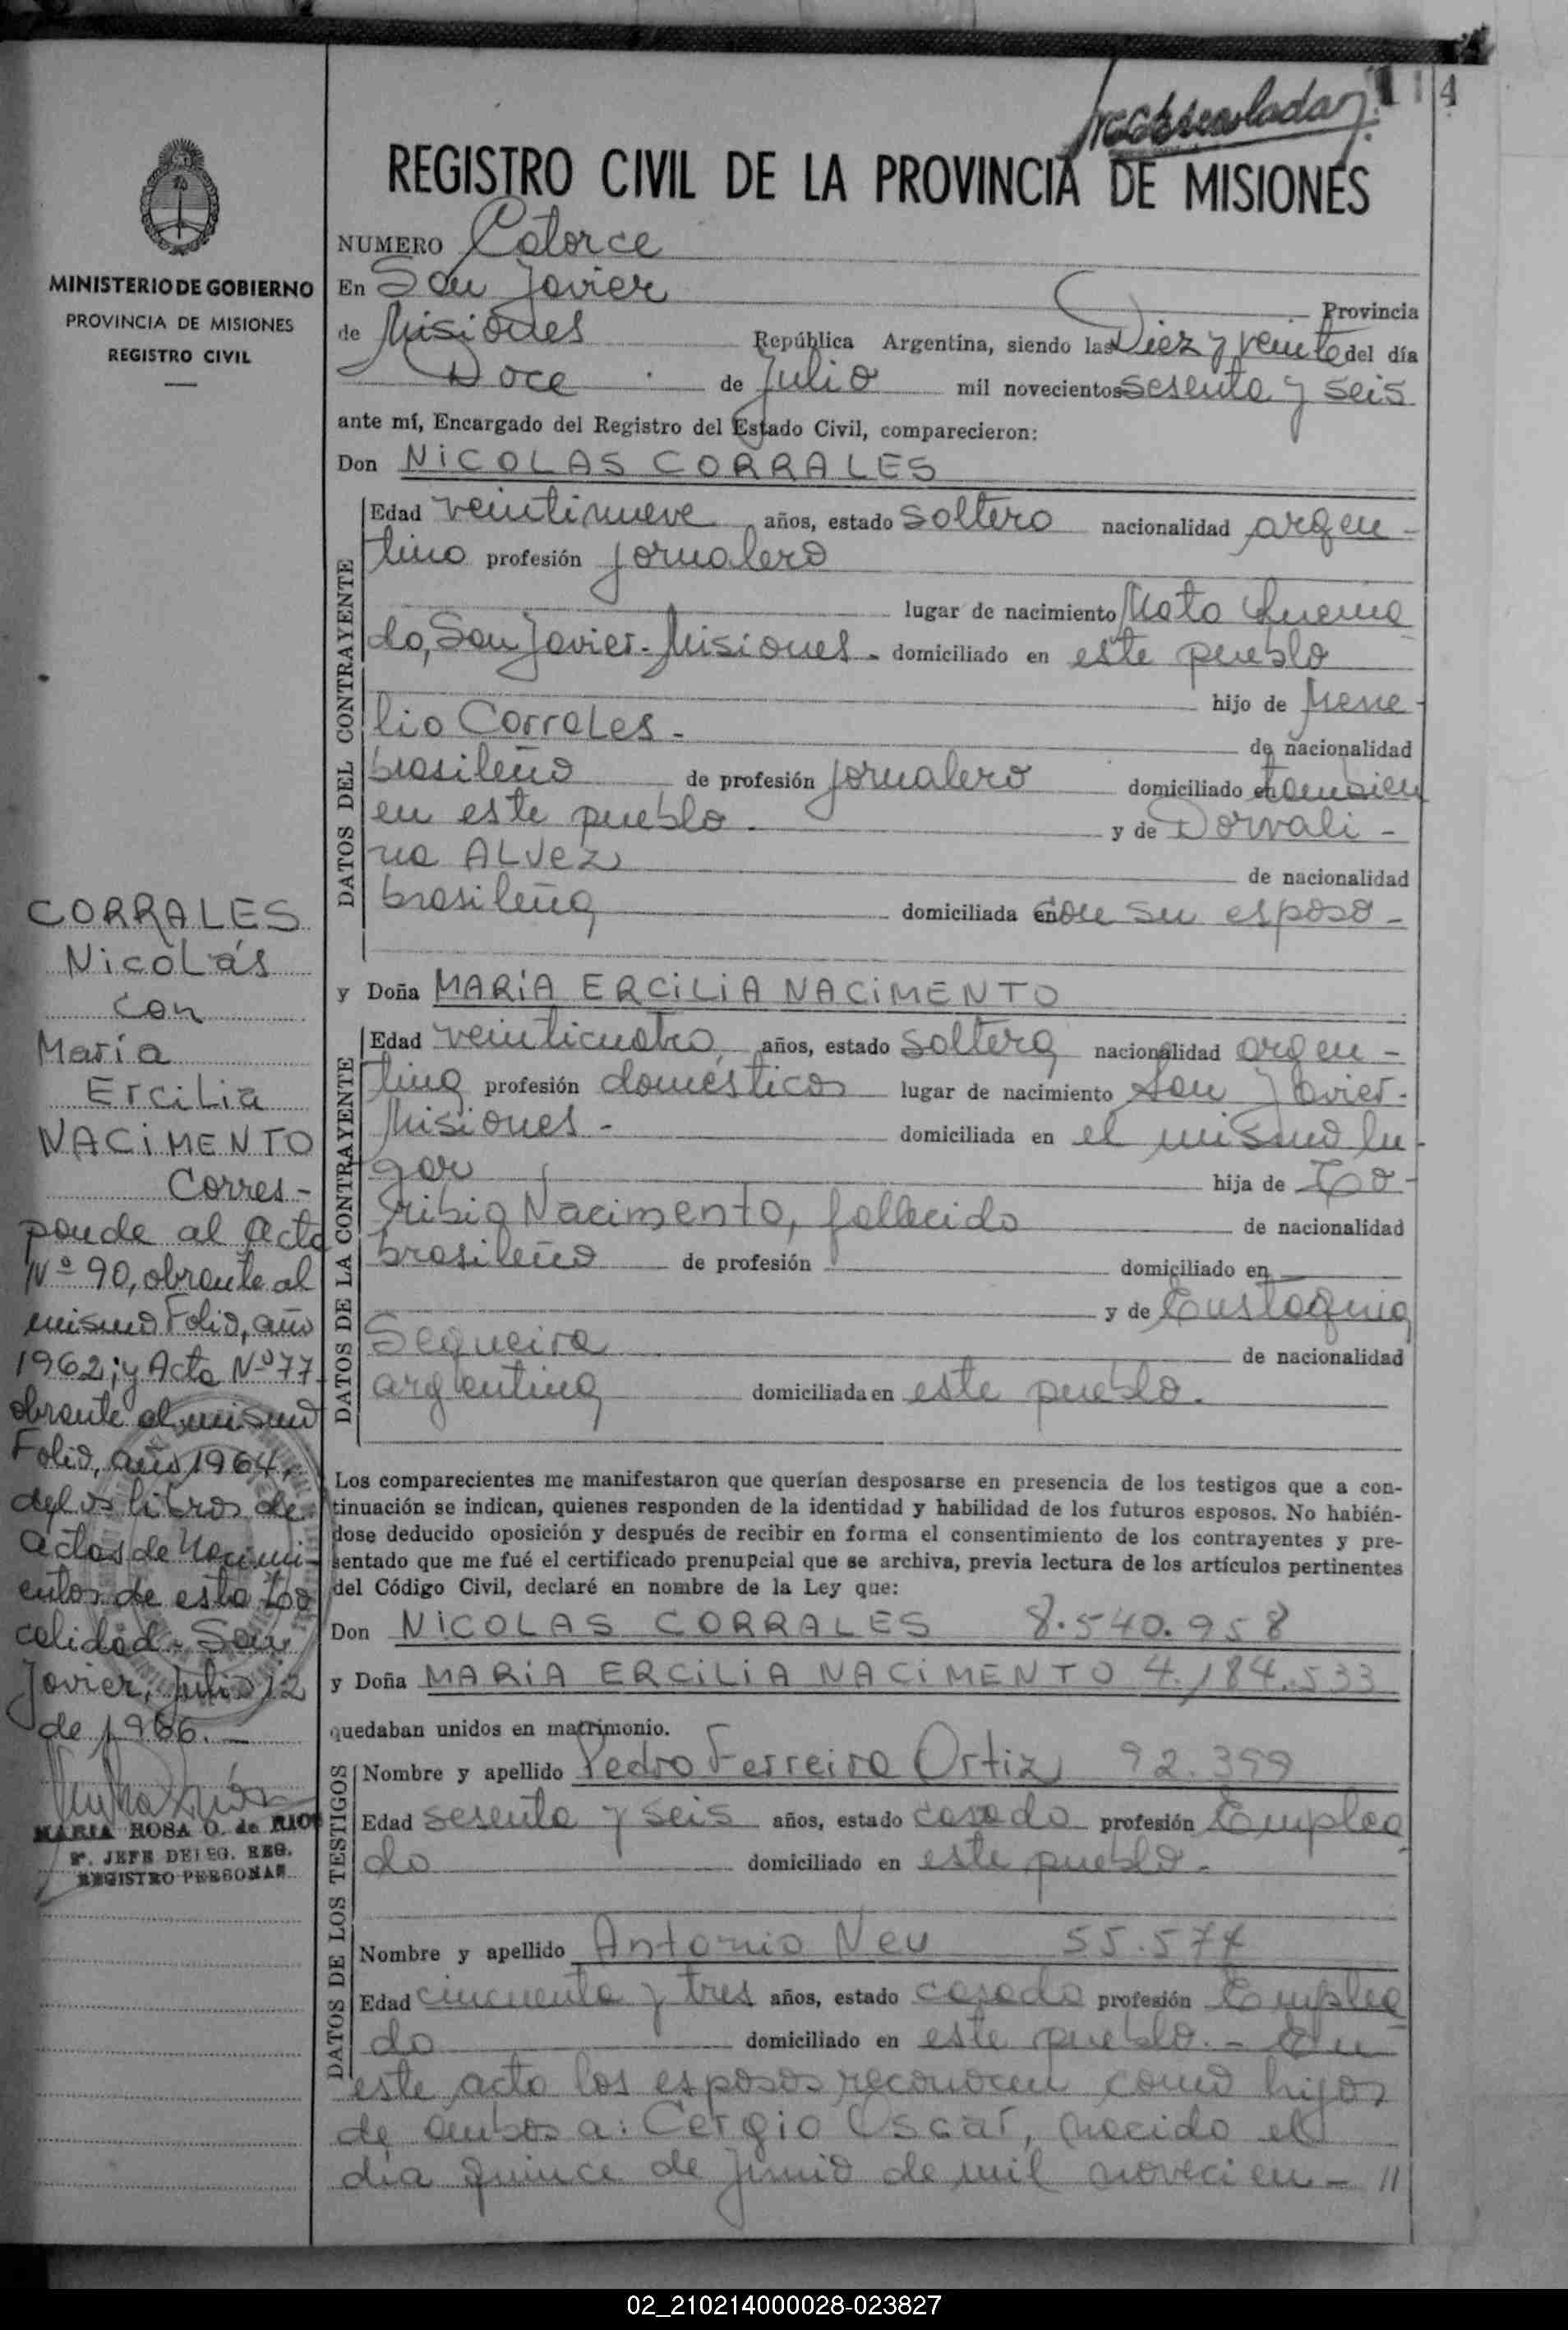 14
REGISTRO CIVIL DE LA PROVINCIA DE MISIONES
MINISTERIO DE GOBIERNO
PROVINCIA DE MISIONES
REGISTRO CIVIL
CORRALES
Nicolás
con
María
Ercilia
NACIMENTO
Corres-
ponde al Acta
Nº 90, obrante al
mismo Folio, año
1962; y Acta Nº 77
obrante al mismo
Folio, año 1964,
de los libros de
Actas de Nacimi-
entos de esta Lo
calidad - San
Javier, Julio 12
de 1966. -
MARIA ROSA O. de RIOS
JEFE DELEG. REG.
REGISTRO PERSONAS
NUMERO Catorce
En San Javier Provincia
de Misiones República Argentina, siendo las Diez y veinte del día
Doce de Julio mil novecientos sesenta y seis
ante mí, Encargado del Registro del Estado Civil, comparecieron:
Don NICOLAS CORRALES
DATOS DEL CONTRAYENTE
Edad veintinueve años, estado soltero nacionalidad argen-
tino profesión jornalero
lugar de nacimiento Mato Quema
do, San Javier - Misiones - domiciliado en este pueblo
hijo de Mene-
lio Corrales - de nacionalidad
brasileño de profesión jornalero domiciliado en también
en este pueblo - y de Dorvali-
na ALVez de nacionalidad
brasileña domiciliada en con su esposo -
y Doña MARIA ERCILIA NACIMENTO
DATOS DE LA CONTRAYENTE
Edad veinticuatro años, estado soltera nacionalidad argen-
tina profesión domésticos lugar de nacimiento San Javier-
Misiones - domiciliada en el mismo lu-
gar hija de To-
ribio Nacimento, fallecido de nacionalidad
brasileño de profesión domiciliado en
y de Eustaquia
Sequeira de nacionalidad
argentina domiciliada en este pueblo.
Los comparecientes me manifestaron que querían desposarse en presencia de los testigos que a con-
tinuación se indican, quienes responden de la identidad y habilidad de los futuros esposos. No habién-
dose deducido oposición y después de recibir en forma el consentimiento de los contrayentes y pre-
sentado que me fué el certificado prenupcial que se archiva, previa lectura de los artículos pertinentes
del Código Civil, declaré en nombre de la Ley que:
Don NICOLAS CORRALES 8.540.958
y Doña MARIA ERCILIA NACIMENTO 4.184.533
quedaban unidos en matrimonio.
DATOS DE LOS TESTIGOS
Nombre y apellido Pedro Ferreira Ortiz 92.399
Edad sesenta y seis años, estado casado profesión Emplea
do domiciliado en este pueblo -
Nombre y apellido Antonio Neu 55.574
Edad cincuenta y tres años, estado casado profesión Emplea
do domiciliado en este pueblo. - En
este acto los esposos reconocen como hijos
de ambos a: Cergio Oscar, nacido el
día quince de junio de mil novecien- //
02_210214000028-023827